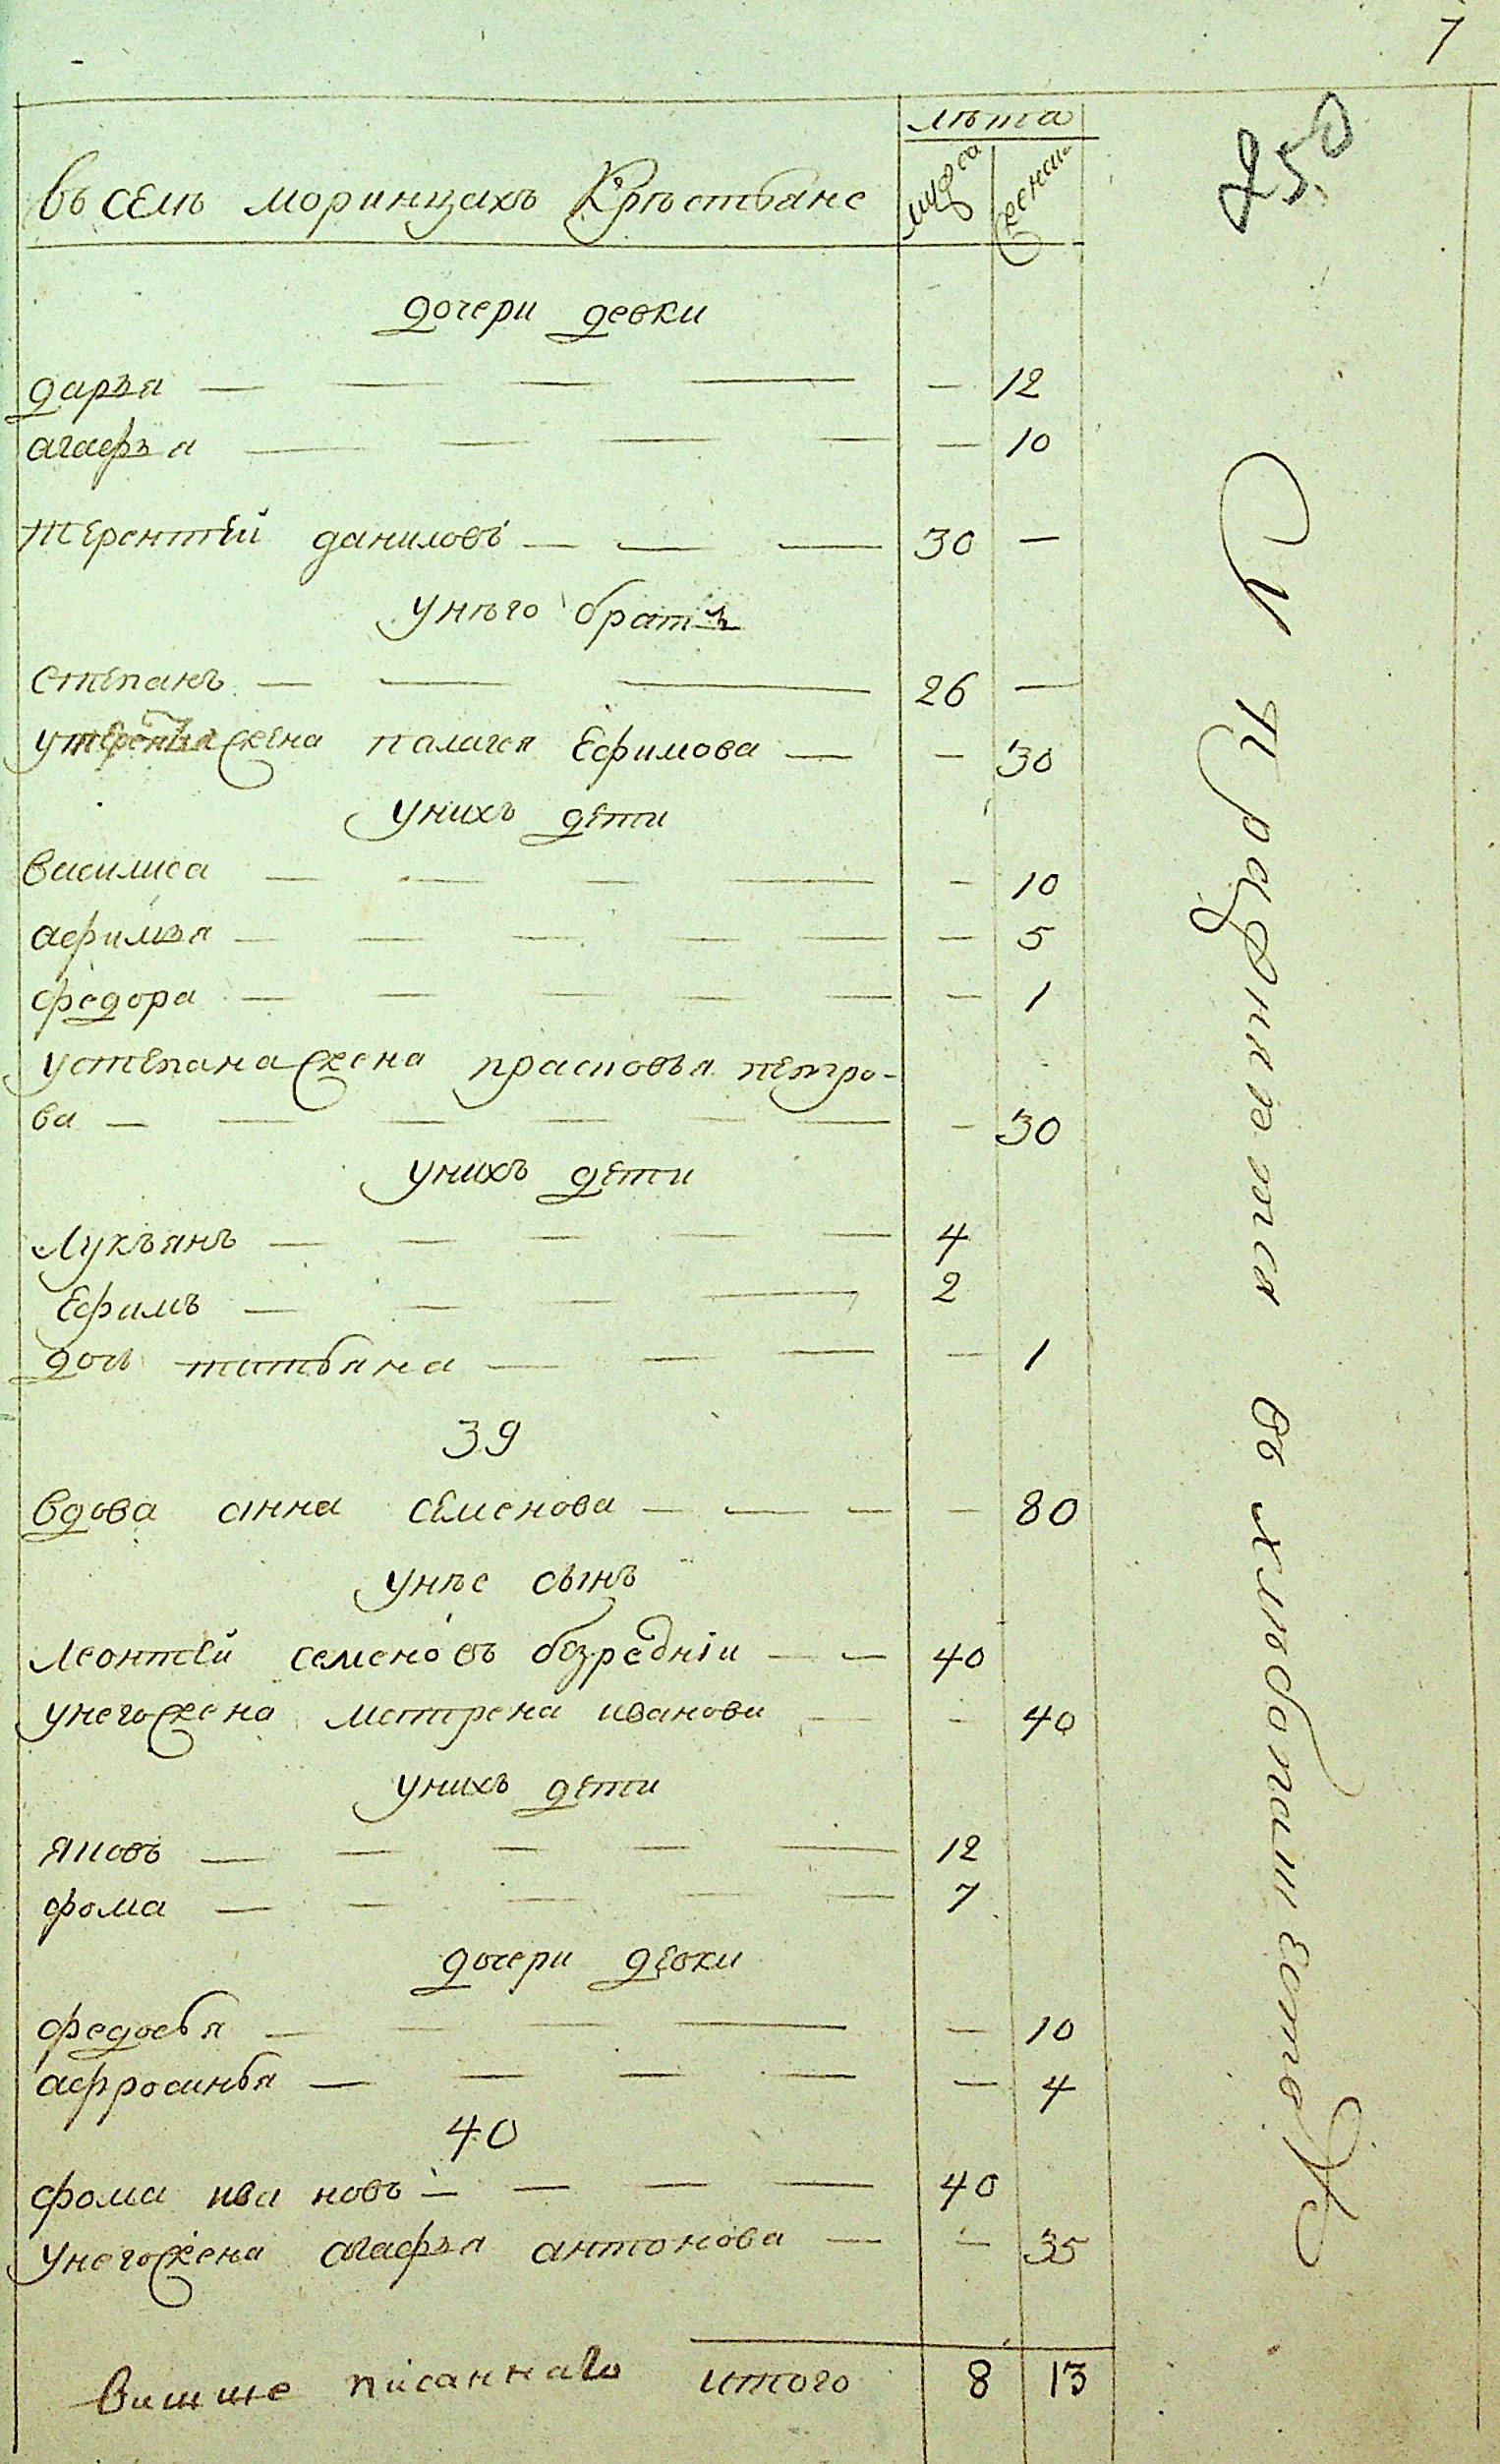 7
250
лѣта
въ селѣ моринцахъ Крѣстьяне мужеса женс
дочери девки
даръя — — — — — 12
агафъя — — — — — 10
терентей даниловъ — — — 30 —
унѣго братъ
степанъ — — — 26 —
утерентья жена палагея Ефимова — — 30
унихъ дети
василиса — — — — — 10
афимъя — — — — — — 5
федора — — — — — — 1
устепана жена прасковья петро-
ва — — — — — — — 30
унихъ дети
Лукъянъ — — — — — 4
Ефимъ — — — — 2
доч татьяна — — — — 1
39
вдова анна семенова — — — — 80
унѣе сынъ
леонтей семеновъ безредніи — — 40
унего жена мотрена иванова — — 40
унихъ дети
яковъ — — — — — 12
фома — — — — — 7
дочери девки
федосья — — — — — 10
афросинья — — — — — — 4
40
фома ива новъ — — — — 40
унего жена агафъя антонова — — 35
вишше писаннаго итого 8 13
упражняется в хлебопашество